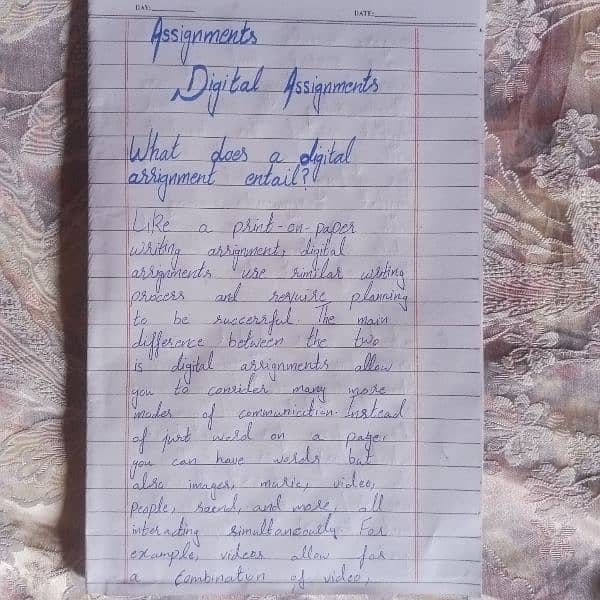 DAY: DATE:
Assignments
Digital Assignments
What does a digital
assignment entail?
Like a print-on-paper
writing assignment, digital
assignments use similar writing
process and require planning
to be successful. The main
difference between the two
is digital assignments allow
you to consider many more
modes of communication. Instead
of just word on a page,
you can have words but
also images, music, video,
people, sound, and more, all
interacting simultaneously. For
example, videos allow for
a combination of video,